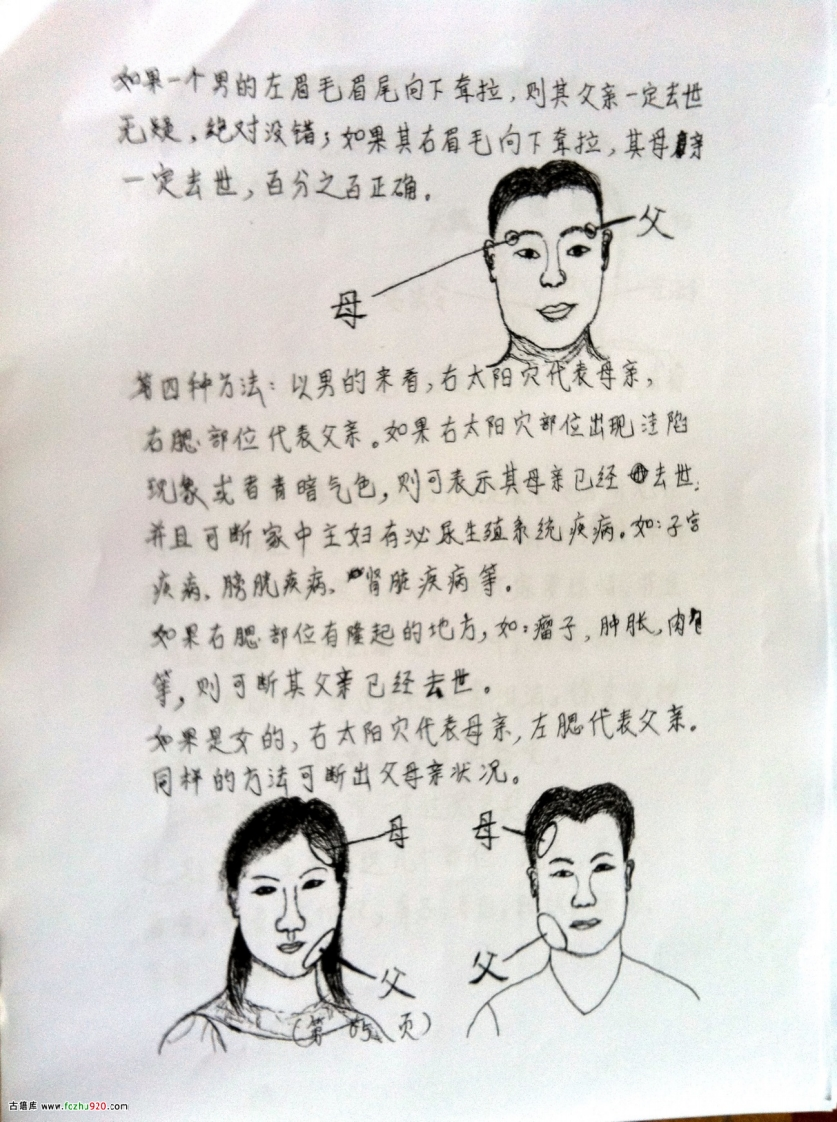 如果一个男的左眉毛眉尾向下耷拉，则其父亲一定去世
无疑，绝对没错；如果其右眉毛向下耷拉，其母亲
一定去世，百分之百正确。
父
母
第四种方法：以男的来看，右太阳穴代表母亲，
右腮部位代表父亲。如果右太阳穴部位出现洼陷
现象或者青暗气色，则可表示其母亲已经去世；
并且可断家中主妇有泌尿生殖系统疾病。如：子宫
疾病、膀胱疾病、肾脏疾病等。
如果右腮部位有隆起的地方，如：瘤子，肿胀，肉包
等，则可断其父亲已经去世。
如果是女的，右太阳穴代表母亲，左腮代表父亲。
同样的方法可断出父母亲状况。
母
母
父
父
（第 页）
古籍库 www.fczhu920.com